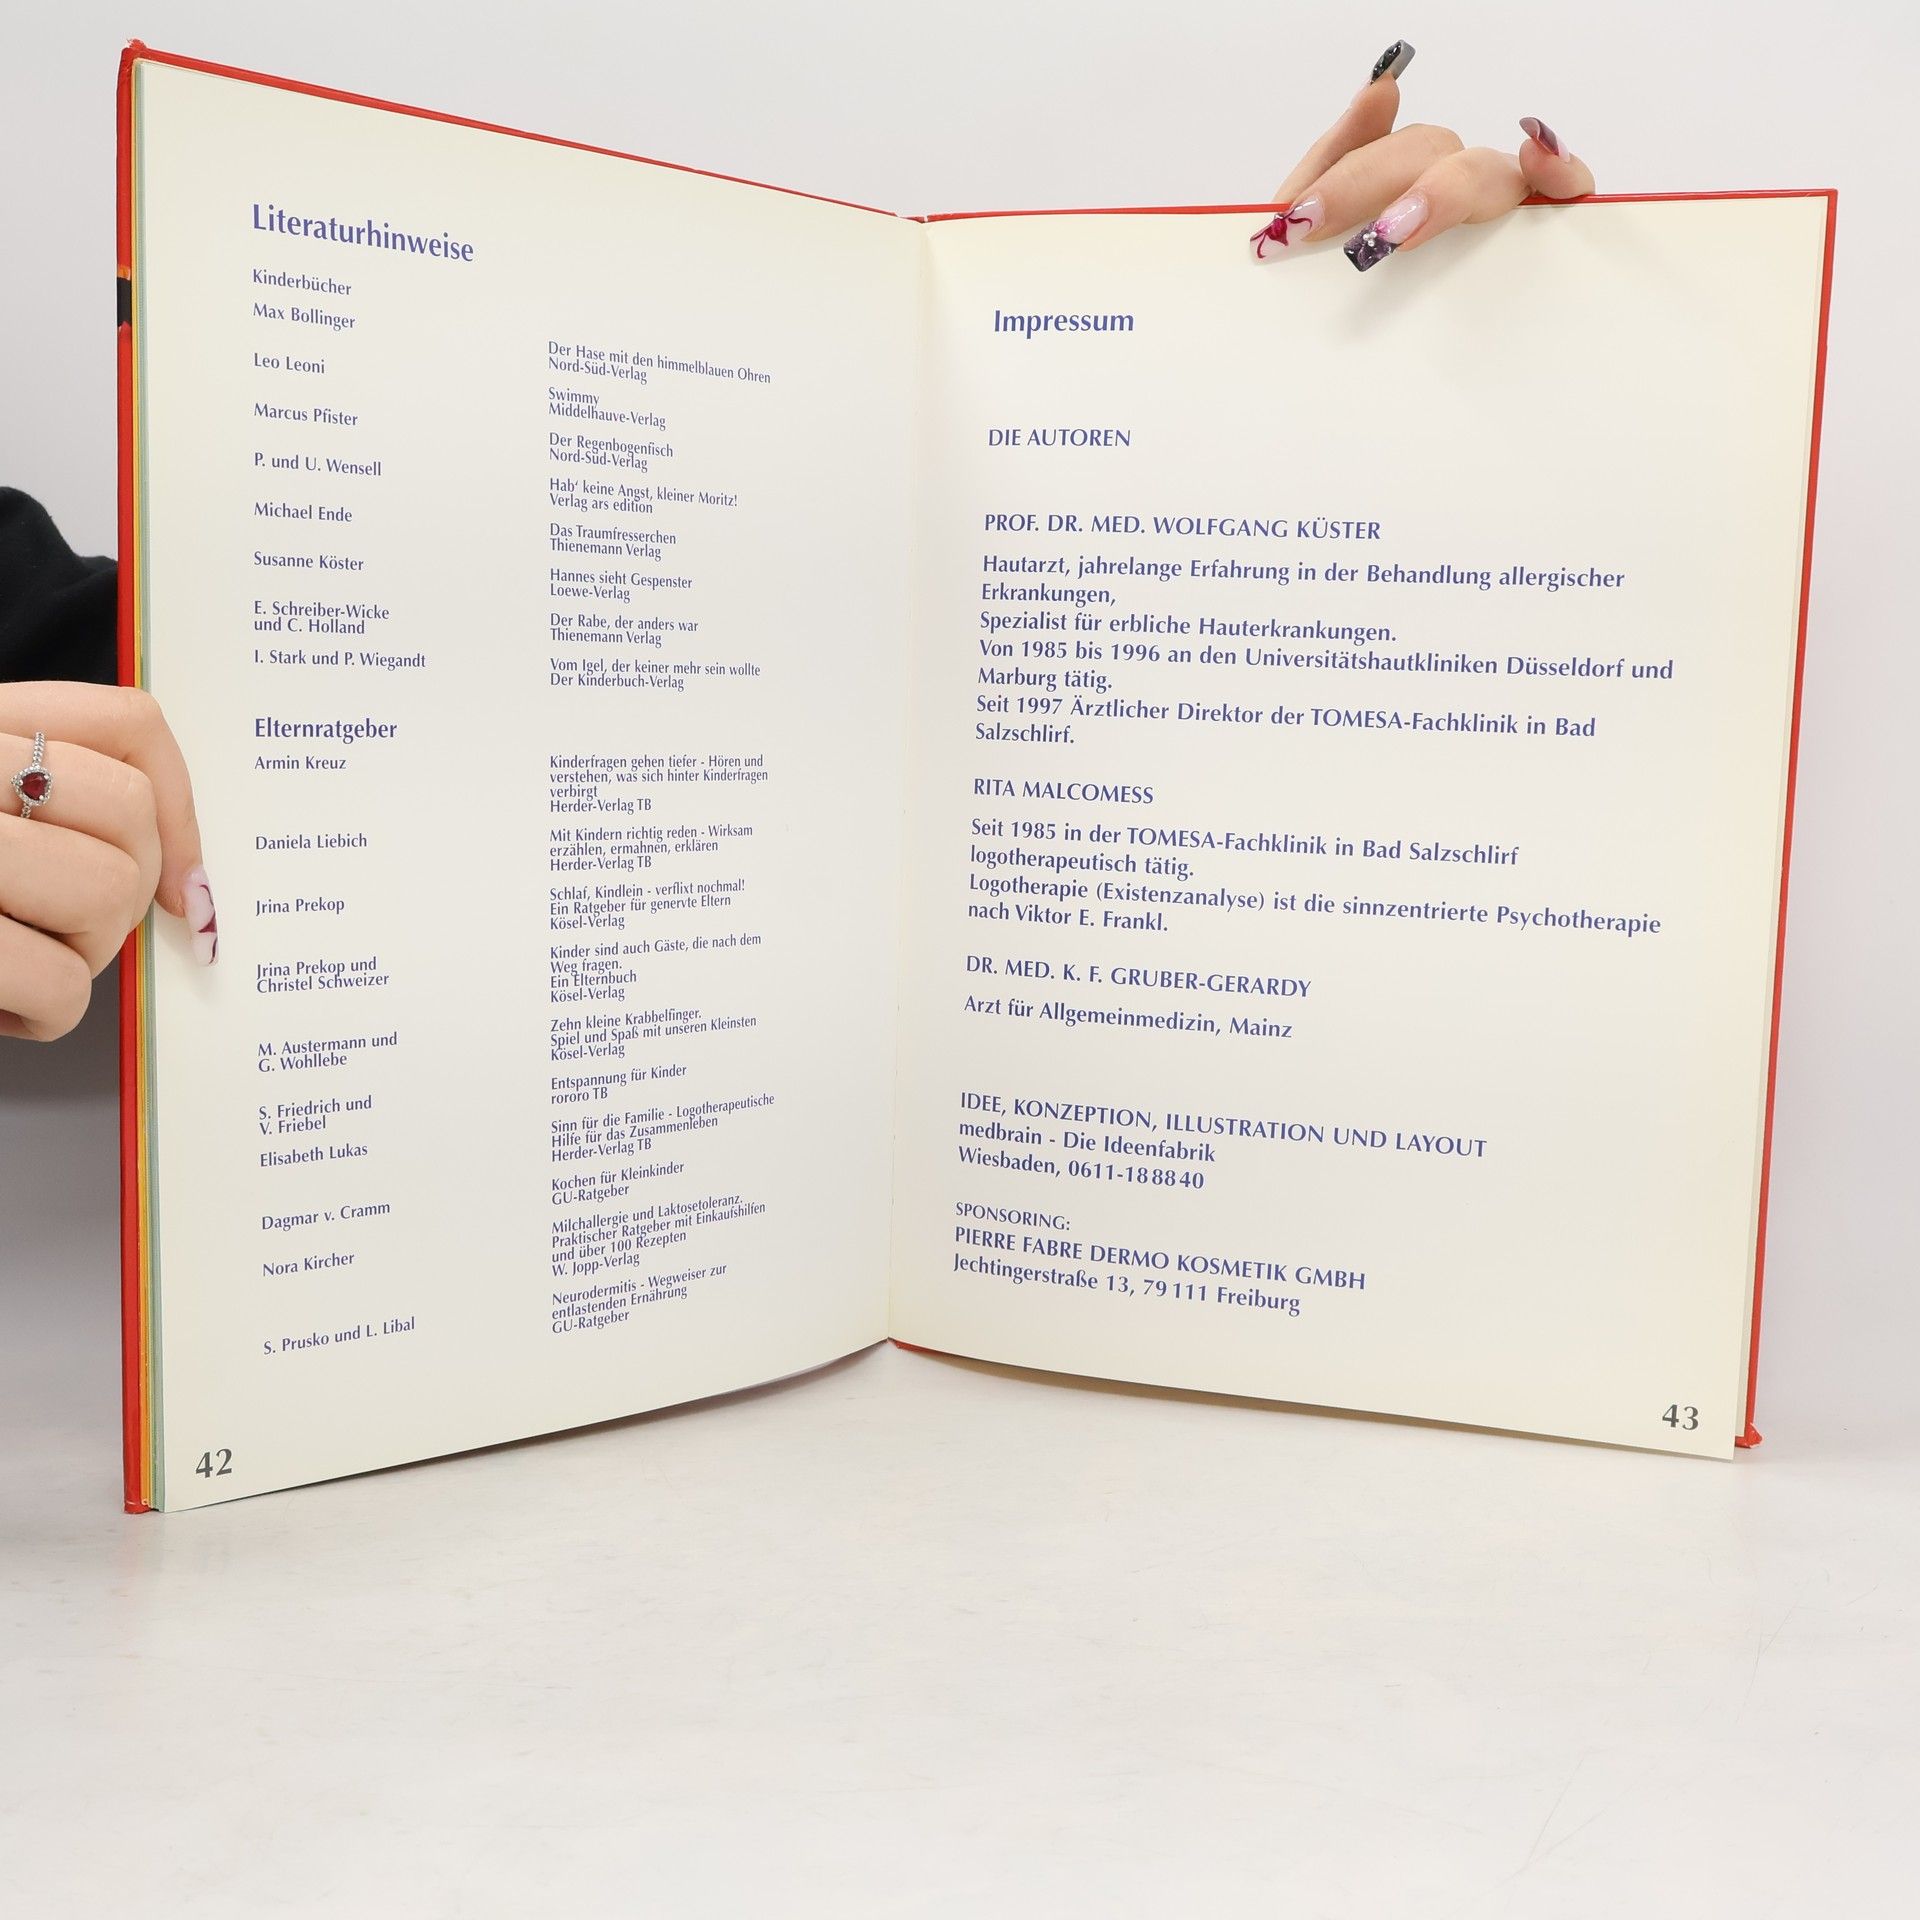 Literaturhinweise
Kinderbücher
Max Bollinger
Der Hase mit den himmelblauen Ohren
Nord-Süd-Verlag
Leo Leoni
Swimmy
Middelhauve-Verlag
Marcus Pfister
Der Regenbogenfisch
Nord-Süd-Verlag
P. und U. Wensell
Hab' keine Angst, kleiner Moritz!
Verlag ars edition
Michael Ende
Das Traumfresserchen
Thienemann Verlag
Susanne Köster
Hannes sieht Gespenster
Loewe-Verlag
E. Schreiber-Wicke
und C. Holland
Der Rabe, der anders war
Thienemann Verlag
I. Stark und P. Wiegandt
Vom Igel, der keiner mehr sein wollte
Der Kinderbuch-Verlag
Elternratgeber
Armin Kreuz
Kinderfragen gehen tiefer - Hören und
verstehen, was sich hinter Kinderfragen
verbirgt
Herder-Verlag TB
Daniela Liebich
Mit Kindern richtig reden - Wirksam
erzählen, ermahnen, erklären
Herder-Verlag TB
Jrina Prekop
Schlaf, Kindlein - verflixt nochmal!
Ein Ratgeber für genervte Eltern
Kösel-Verlag
Jrina Prekop und
Christel Schweizer
Kinder sind auch Gäste, die nach dem
Weg fragen.
Ein Elternbuch
Kösel-Verlag
M. Austermann und
G. Wohllebe
Zehn kleine Krabbelfinger.
Spiel und Spaß mit unseren Kleinsten
Kösel-Verlag
S. Friedrich und
V. Friebel
Entspannung für Kinder
rororo TB
Elisabeth Lukas
Sinn für die Familie - Logotherapeutische
Hilfe für das Zusammenleben
Herder-Verlag TB
Dagmar v. Cramm
Kochen für Kleinkinder
GU-Ratgeber
Nora Kircher
Milchallergie und Laktosetoleranz.
Praktischer Ratgeber mit Einkaufshilfen
und über 100 Rezepten
W. Jopp-Verlag
S. Prusko und L. Libal
Neurodermitis - Wegweiser zur
entlastenden Ernährung
GU-Ratgeber
42
Impressum
DIE AUTOREN
PROF. DR. MED. WOLFGANG KÜSTER
Hautarzt, jahrelange Erfahrung in der Behandlung allergischer
Erkrankungen,
Spezialist für erbliche Hauterkrankungen.
Von 1985 bis 1996 an den Universitätshautkliniken Düsseldorf und
Marburg tätig.
Seit 1997 Ärztlicher Direktor der TOMESA-Fachklinik in Bad
Salzschlirf.
RITA MALCOMESS
Seit 1985 in der TOMESA-Fachklinik in Bad Salzschlirf
logotherapeutisch tätig.
Logotherapie (Existenzanalyse) ist die sinnzentrierte Psychotherapie
nach Viktor E. Frankl.
DR. MED. K. F. GRUBER-GERARDY
Arzt für Allgemeinmedizin, Mainz
IDEE, KONZEPTION, ILLUSTRATION UND LAYOUT
medbrain - Die Ideenfabrik
Wiesbaden, 0611-18 88 40
SPONSORING:
PIERRE FABRE DERMO KOSMETIK GMBH
Jechtingerstraße 13, 79 111 Freiburg
43